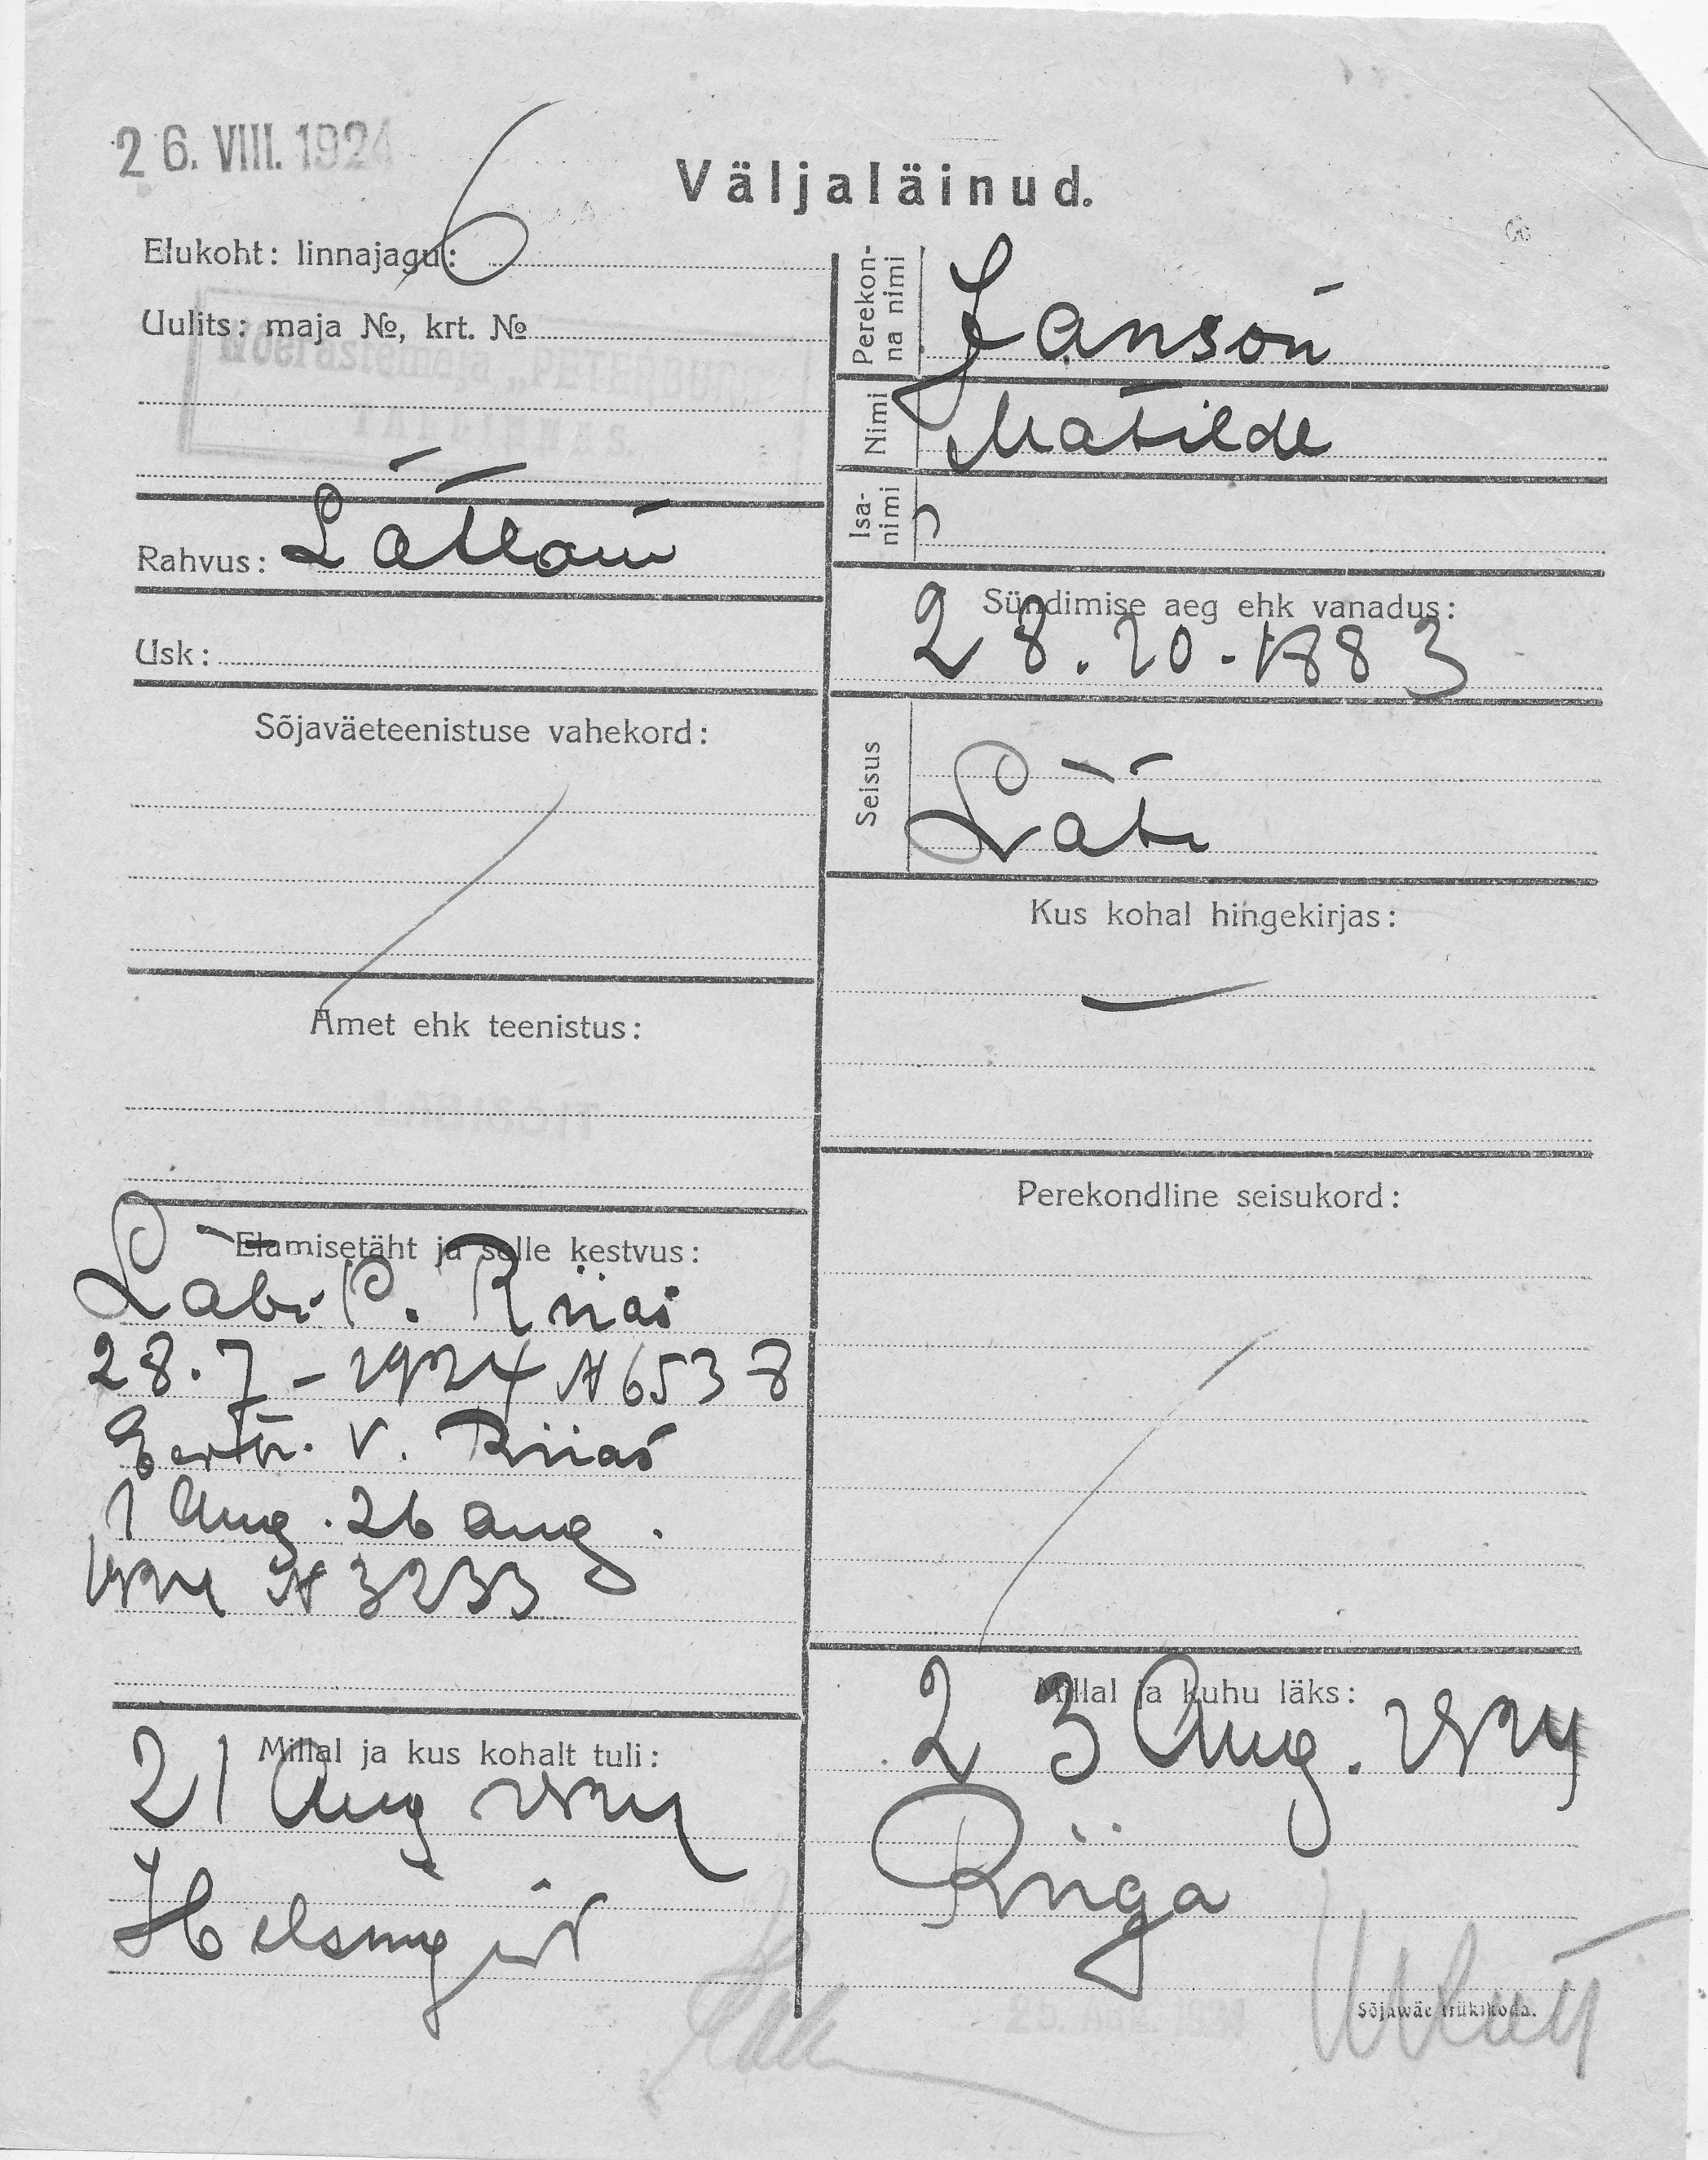 26. VIII. 1924
Väljaläinud.
Elukoht: linnajagu: 6
Uulits: maja №, krt. №
Wõerastemaja „PETERBURG"
TALLINNAS.
Rahvus:
Usk:
Sõjaväeteenistuse vahekord:
Amet ehk teenistus:
Elamisetäht ja selle kestvus:
Läti P. Riias
28.7 - 1924 № 6538
V. Riias
1 Aug. 26 aug.
1924 № 3233
Millal ja kus kohalt tuli:
21 Aug 1924
Perekon-
na nimi
Janson
Nimi
Matilde
Isa-
nimi
Sündimise aeg ehk vanadus:
28.10.1883
Seisus
Läti
Kus kohal hingekirjas:
Perekondline seisukord:
Millal ja kuhu läks:
23 Aug. 1924
Riiga
Sõjawäe trükikoda.